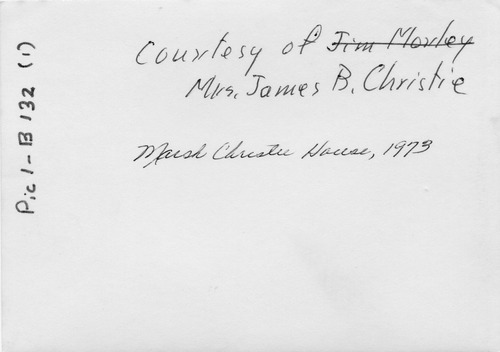 Courtesy of Jim Morley
Mrs. James B. Christie
Marsh Christie House, 1973
Pic 1-B 132 (1)